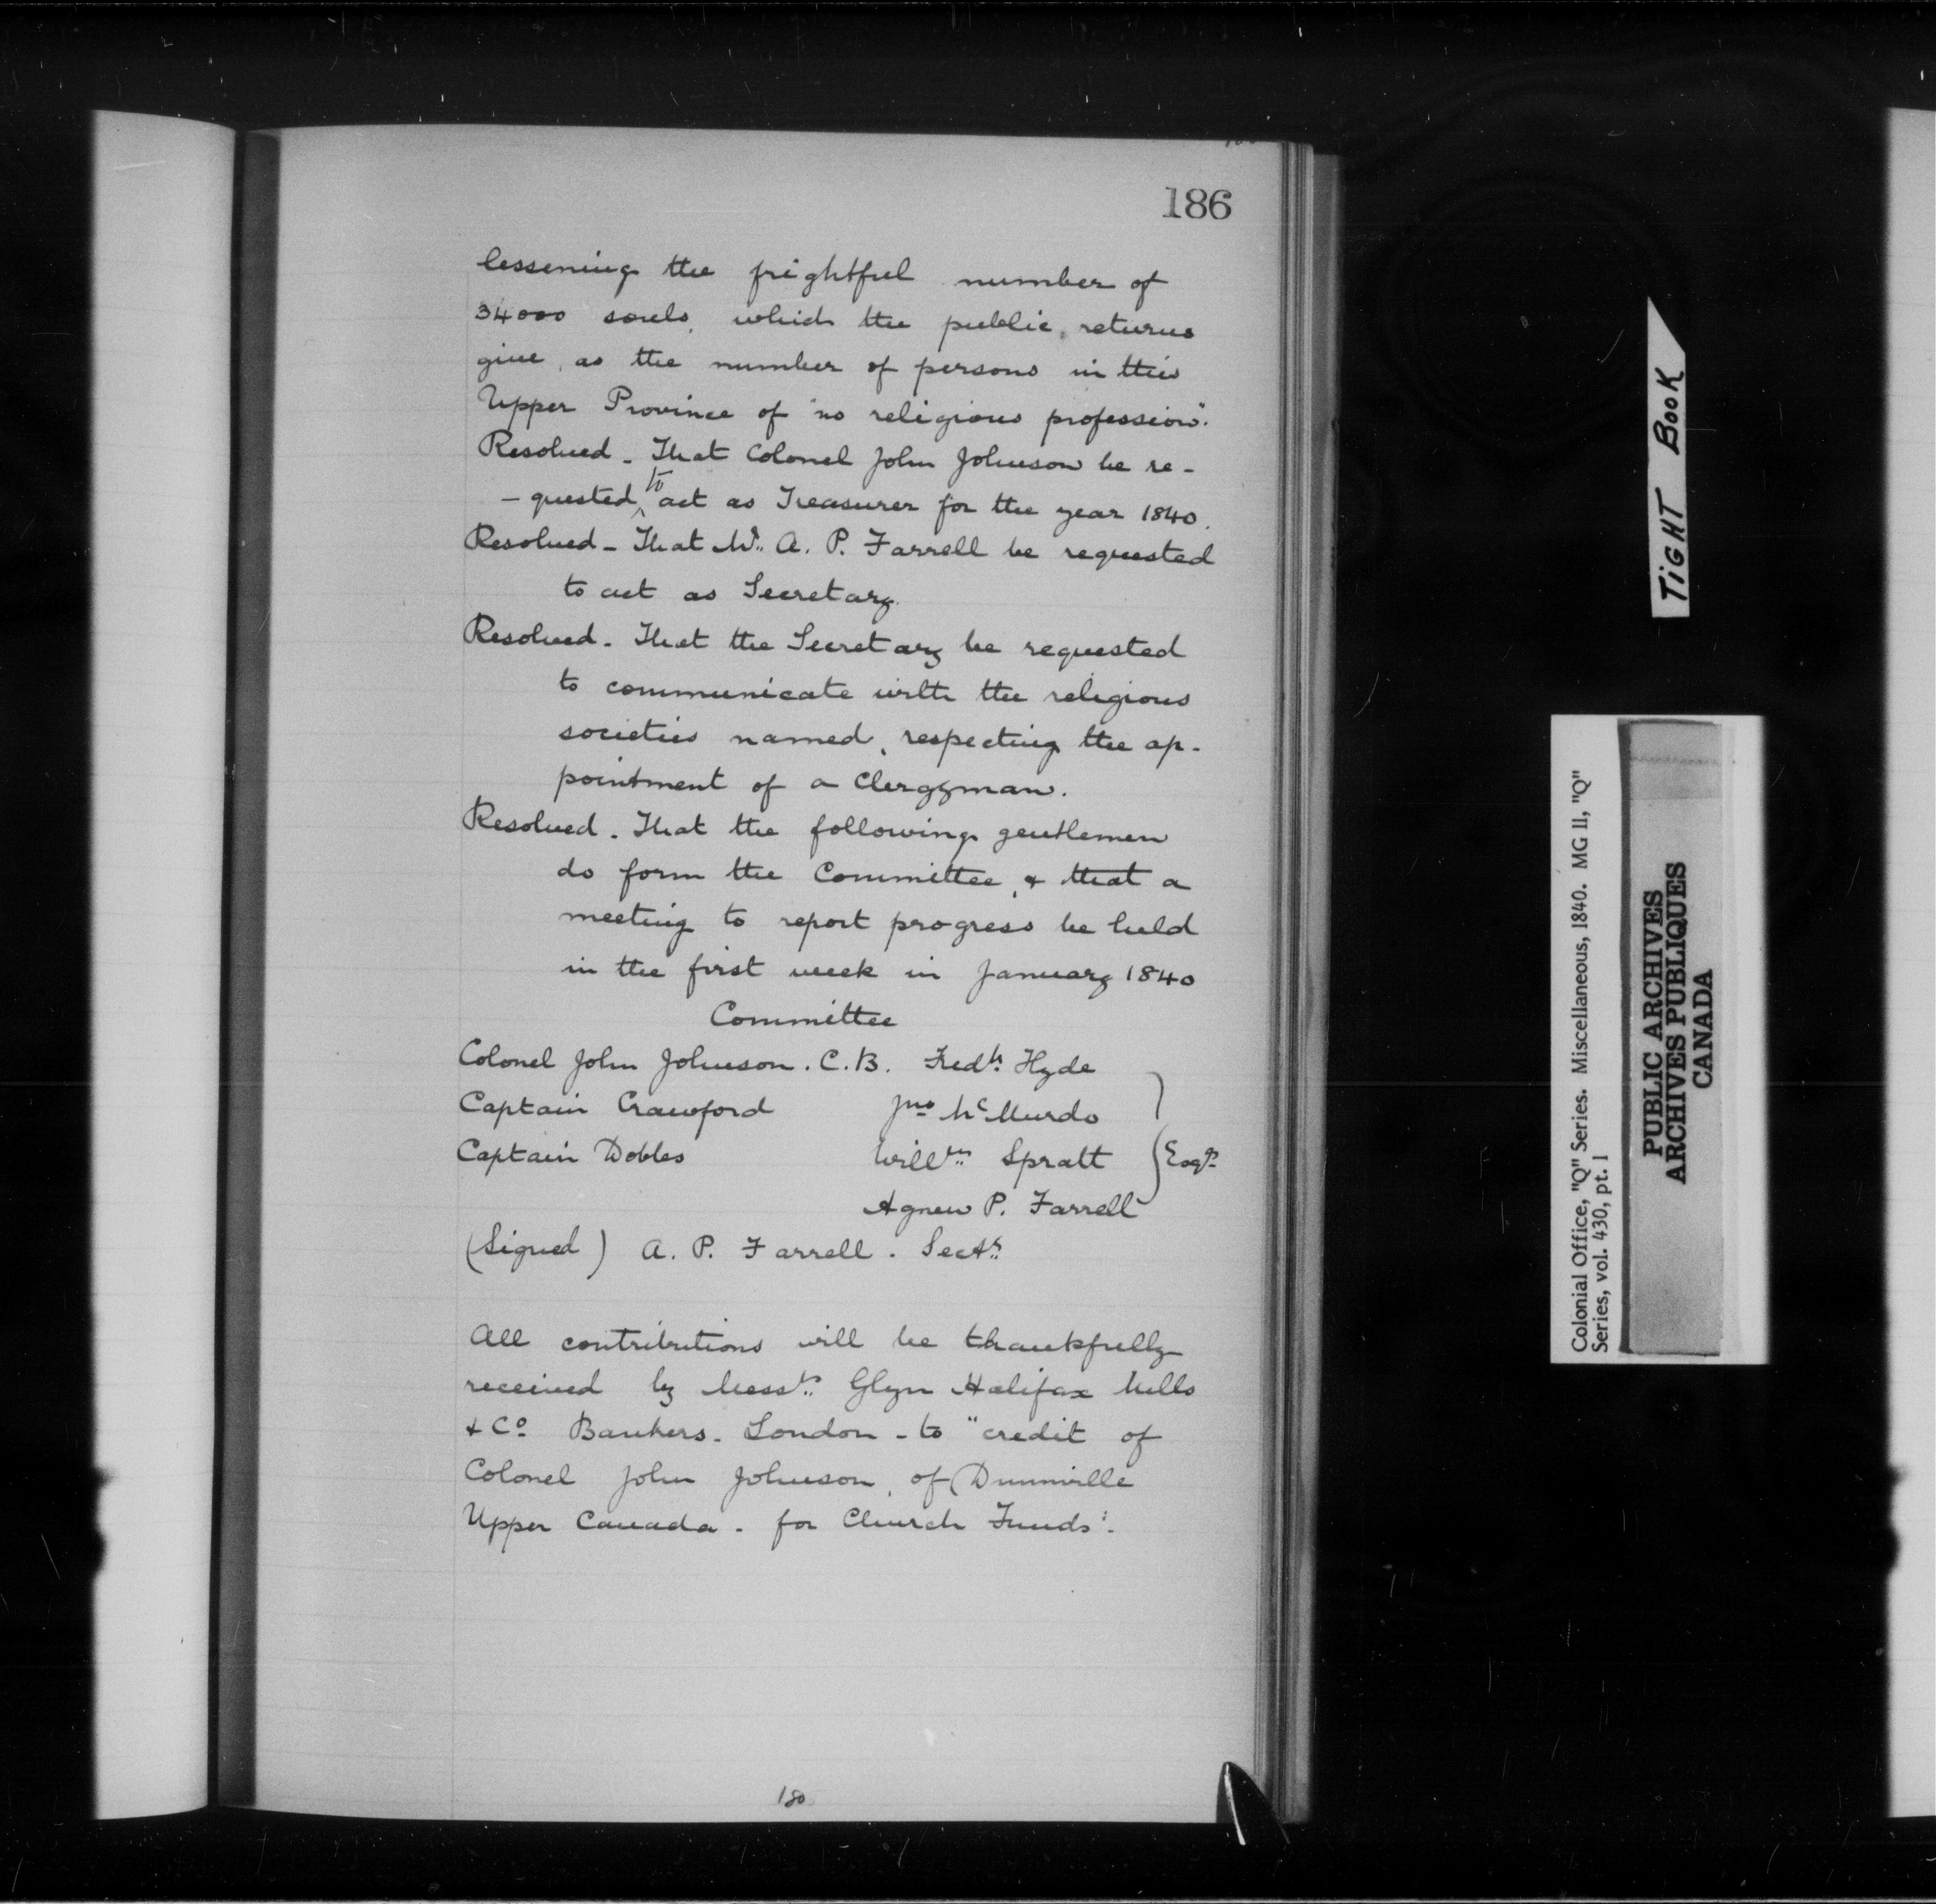 186
lessening the frightful number of
34000 souls, which the public, returns
give, as the number of persons in this
Upper Province of "no religious profession".
Resolved - That Colonel John Johnson be re-
- quested to act as Treasurer for the year 1840.
Resolved - That Mr. A. P. Farrell be requested
to act as Secretary.
Resolved - That the Secretary be requested
to communicate with the religious
societies named, respecting the ap-
pointment of a Clergyman.
Resolved - That the following gentlemen
do form the Committee, & that a
meeting to report progress be held
in the first week in January 1840
Committee
Colonel John Johnson. C.B. Fredk Hyde
Captain Crawford Jno McMurdo
Captain Dobbs Willm Spratt } Esqrs
Agnew P. Farrell
(Signed) A. P. Farrell. Secty.
All contributions will be thankfully
received by Messrs. Glyn Halifax Mills
& Co. Bankers - London - to "credit of
Colonel John Johnson, of Dunnville
Upper Canada - for Church Funds".
180
TIGHT BOOK
Colonial Office, "Q" Series. Miscellaneous, 1840. MG 11, "Q"
Series, vol. 430, pt. 1
PUBLIC ARCHIVES
ARCHIVES PUBLIQUES
CANADA